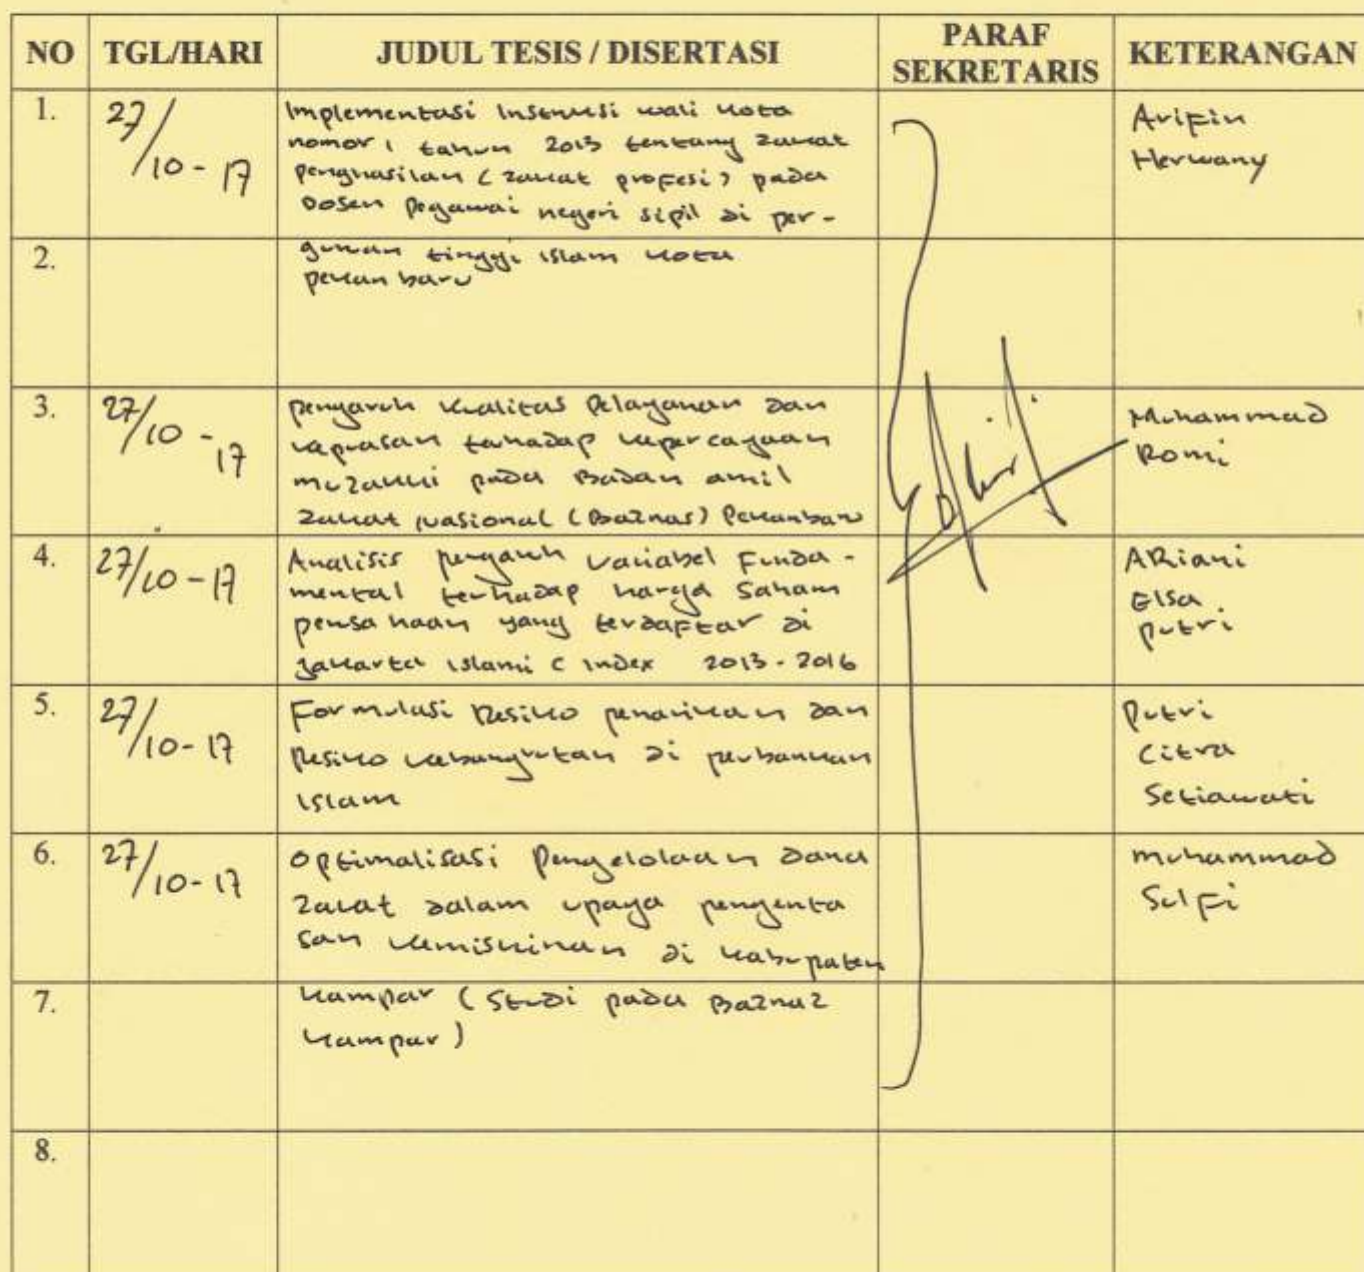 NO TGL/HARI JUDUL TESIS / DISERTASI PARAF SEKRETARIS KETERANGAN
1. 27/10-17 Implementasi Instruksi wali kota Arifin
nomor 1 tahun 2013 tentang zakat Herwany
penghasilan (zakat profesi) pada
Dosen pegawai negeri sipil di per-
2. guruan tinggi islam kota
pekanbaru
3. 27/10-17 pengaruh kualitas Pelayanan dan Muhammad
kepuasan terhadap kepercayaan Romi
muzakki pada Badan amil
zakat nasional (Baznas) Pekanbaru
4. 27/10-17 Analisis pengaruh variabel Funda- ARiani
mental terhadap harga saham Elsa
perusahaan yang terdaftar di putri
jakarta islami ( index 2013-2016
5. 27/10-17 Formulasi Resiko penarikan dan Putri
Resiko kebangkrutan di perbankan Citra
islam Setiawati
6. 27/10-17 optimalisasi Pengelolaan Dana muhammad
zakat dalam upaya pengenta Sulfi
san kemiskinan di kabupaten
7. kampar (Studi pada Baznaz
kampar)
8.